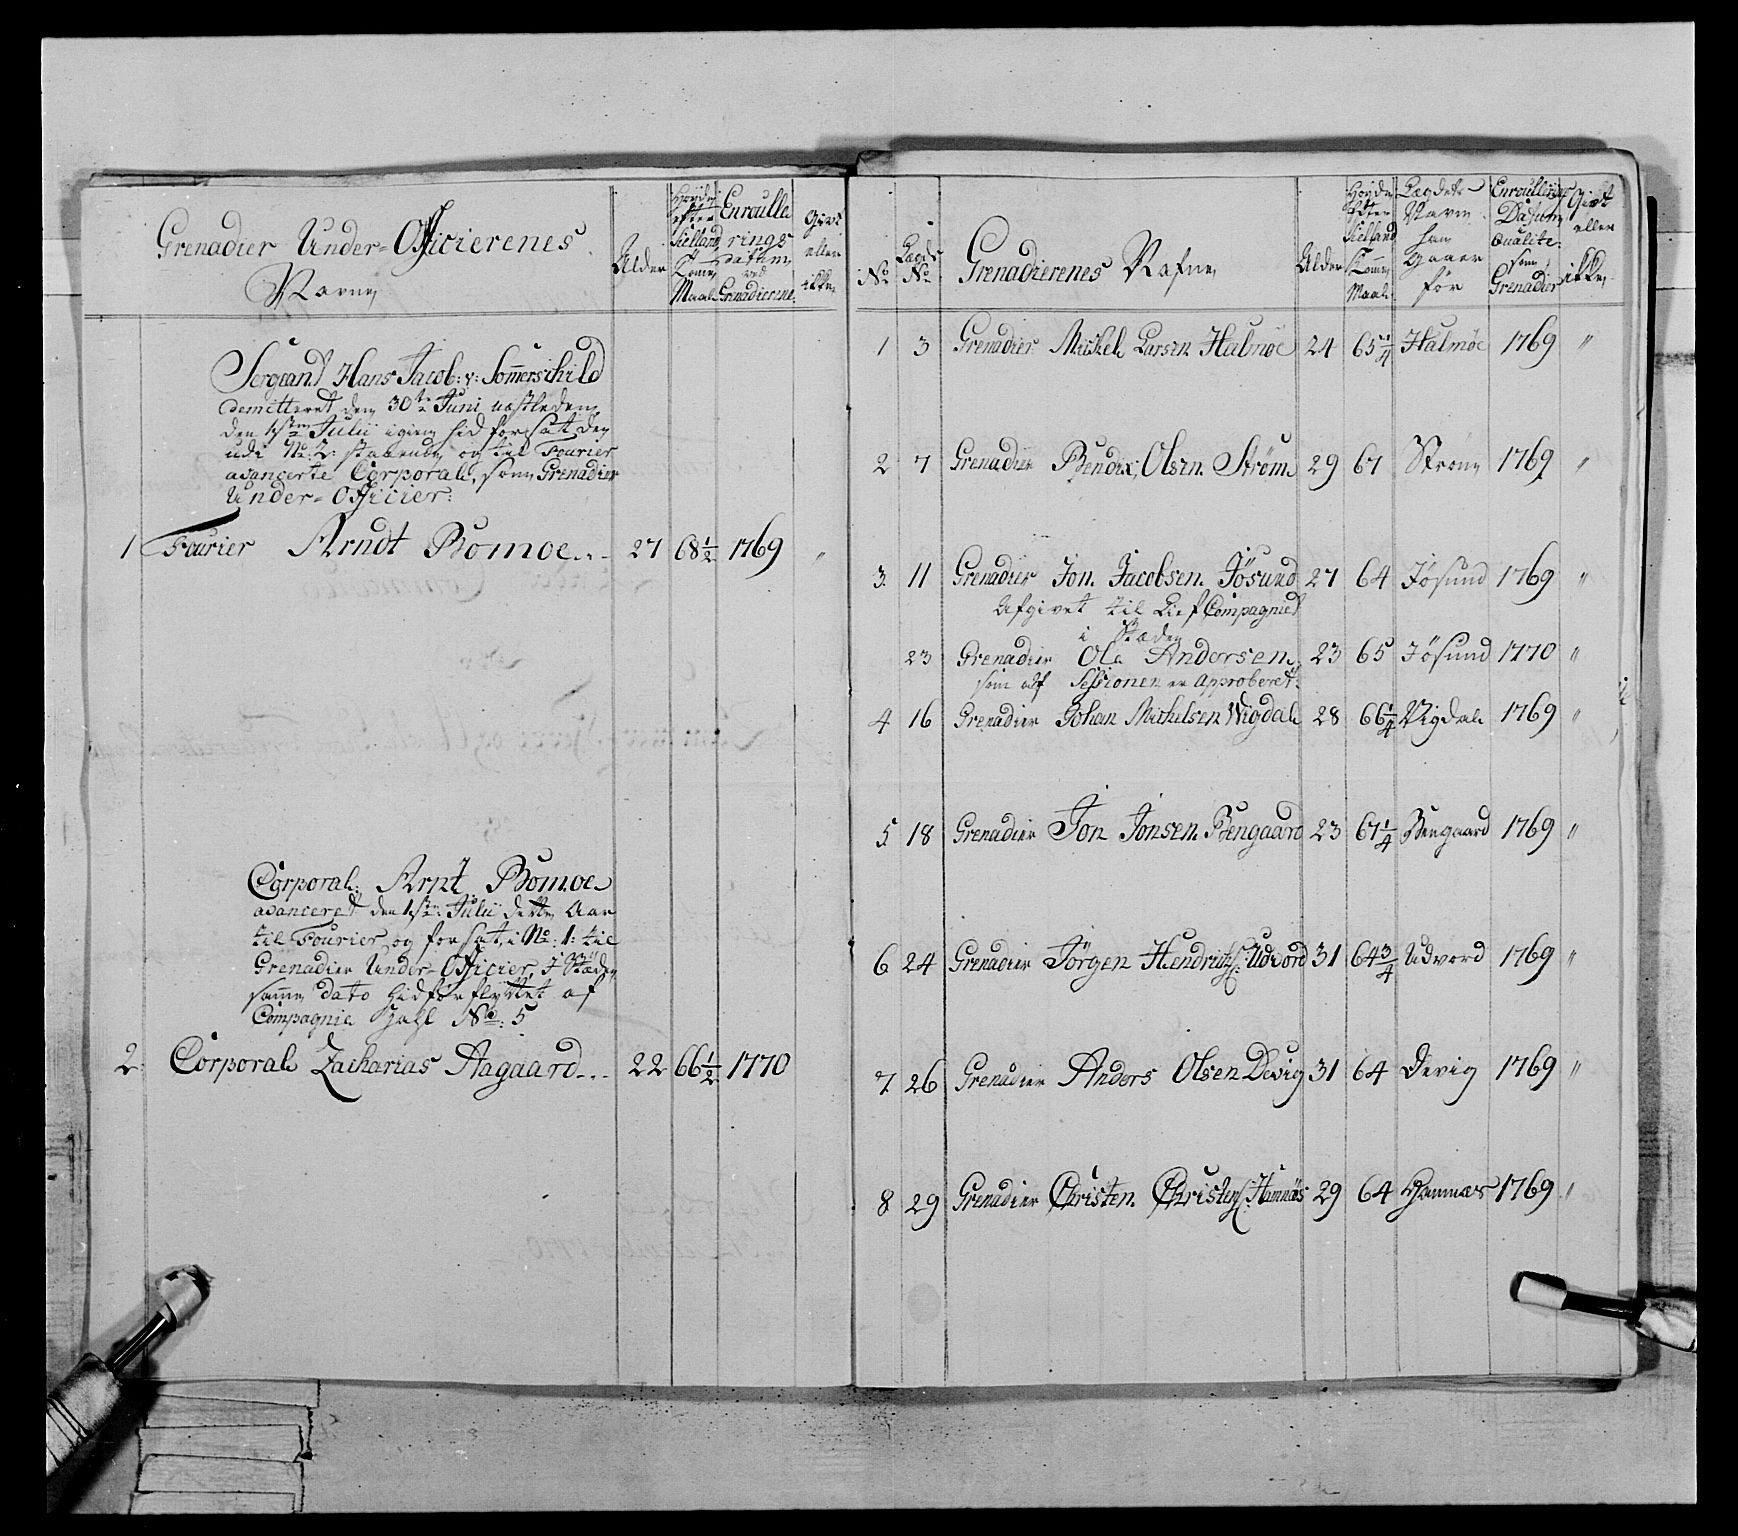 Grenadier Under-Officierenes
Navne
Alder
Høyde efter Siellands Tomme Maal
Enroullerings Datum ved Grenadiererne
Givt eller ikke
Sergeant Hans Jacob: v: Sommerschild
demitteret den 30te Juni næstleden,
den 1ste Julii igien hid forsat den
udi No: 2: staaende og til Fourier
avancerte Corporal, som Grenadier
Under-Officier:
1 Fourier Arndt Bomoe... 27 68½ 1769 "
Corporal: Arnt Bomoe
avanceret den 1ste Julii dette Aar
til Fourier og forsat i No: 1: til
Grenadier Under-Officier, I Stæden
samme dato hidforflyttet af
Compagnie Chefl No: 5
2: Corporal Zacharias Aagaard... 22 66½ 1770
No
Lægds No
Grenadierenes Nafne
Alder
Høyde Efter Siellands Tomme Maal
Lægdets Navn han Gaaer for
Enroullerings Datum Qualite: som Grenadier
Givt eller ikke
1 3 Grenadier Michel Larsen Halmøe 24 65¼ Halmøe 1769 "
2 7 Grenadier Bendix Olsen Strøm 29 67 Strøm 1769 "
3 11 Grenadier Jon Jacobsen Jøsund 27 64 Jøsund 1769 "
Afgivet til Lief Compagniet
i Stæden
23 Grenadier Ole Andersen 23 65 Jøsund 1770 "
som af Sessionen er Approberet:
4 16 Grenadier Johan Michelsen Wigdal 28 66¼ Vigdal 1769 "
5 18 Grenadier Jon Jonsen Bengaard 23 67¼ Bengaard 1769 "
6 24 Grenadier Jörgen Hendrichs: Udvord 31 64¾ Udvord 1769 "
7 26 Grenadier Anders Olsen Devig 31 64 Devig 1769 "
8 29 Grenadier Christen Christens: Hamnæs 29 64 Hamnæs 1769 "